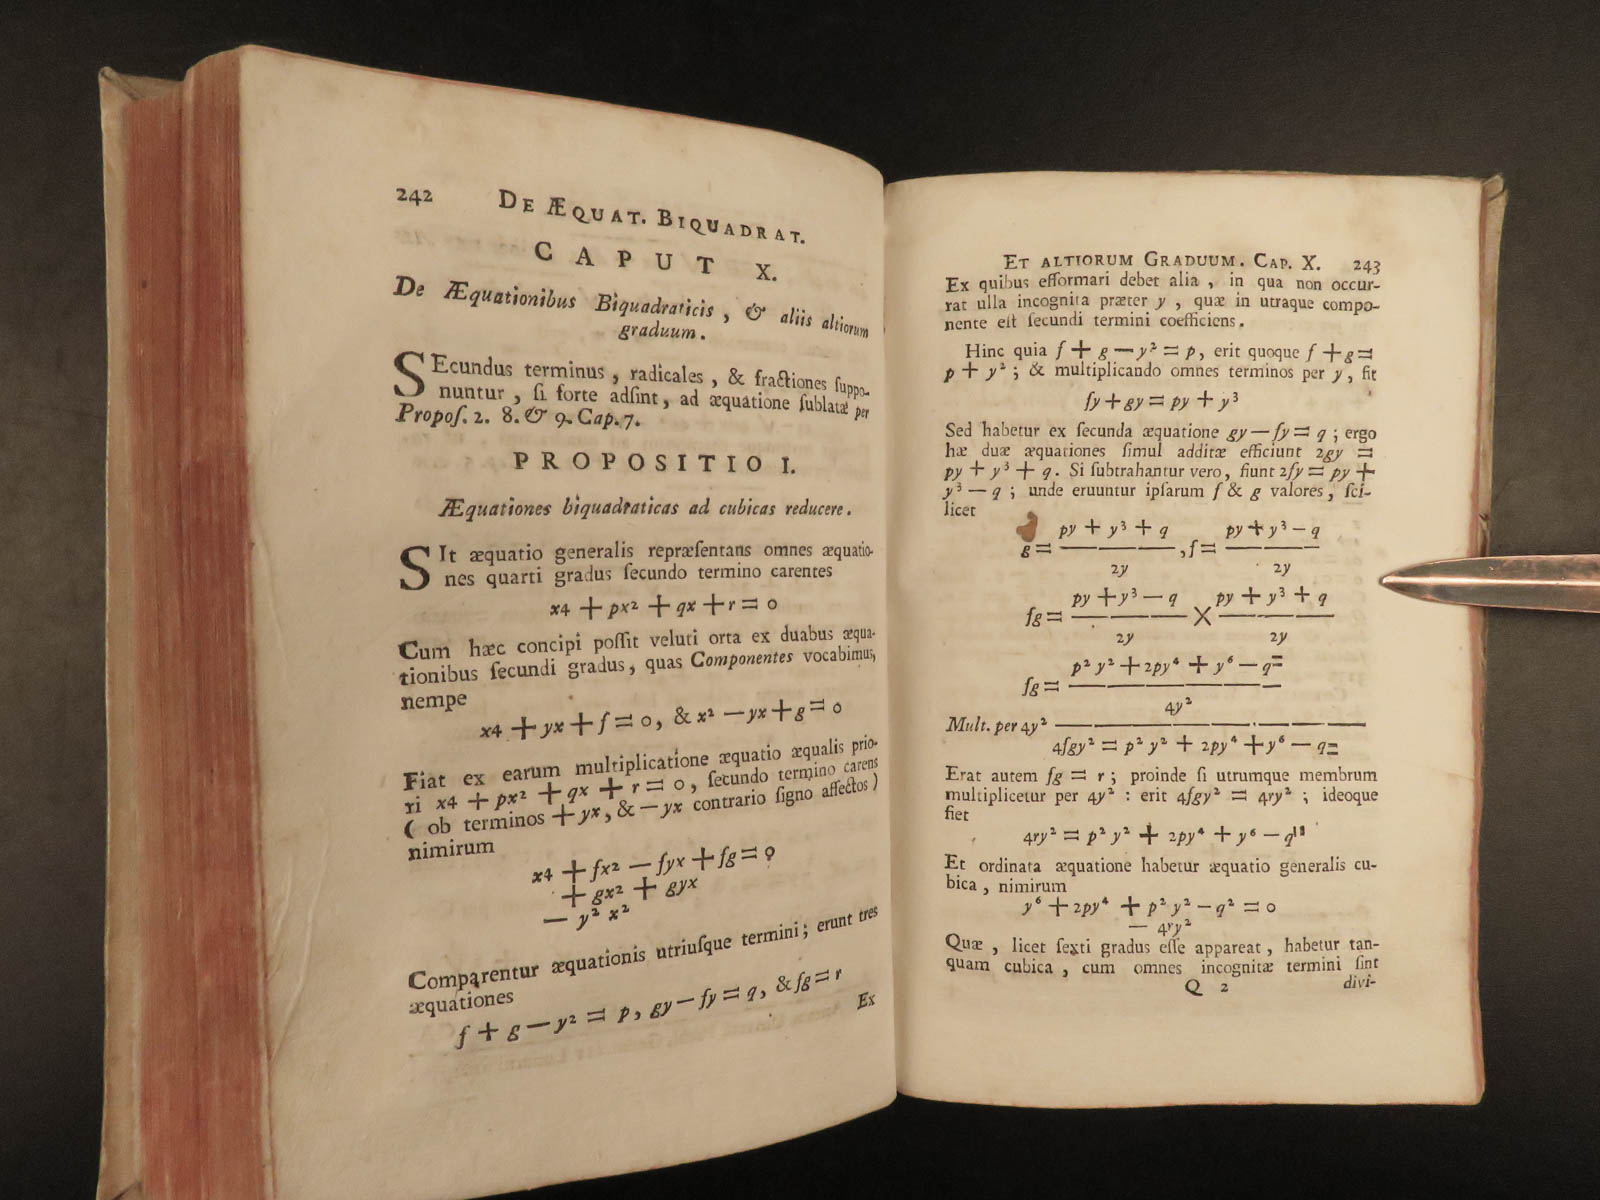 242 DE ÆQUAT. BIQUADRAT.
CAPUT X.
De Æquationibus Biquadraticis, & aliis altiorum
graduum.
SEcundus terminus, radicales, & fractiones ſuppo-
nuntur, ſi forte adſint, ad æquatione ſublatæ per
Propoſ. 2. 8. & 9. Cap. 7.
PROPOSITIO I.
Æquationes biquadraticas ad cubicas reducere.
SIt æquatio generalis repræſentans omnes æquatio-
nes quarti gradus ſecundo termino carentes
x4 + px² + qx + r = 0
Cum hæc concipi poſſit veluti orta ex duabus æqua-
tionibus ſecundi gradus, quas Componentes vocabimus,
nempe
x4 + yx + f = 0, & x² — yx + g = 0
Fiat ex earum multiplicatione æquatio æqualis prio-
ri x4 + px² + qx + r = 0, ſecundo termino carens
( ob terminos + yx, & — yx contrario ſigno affectos )
nimirum
x4 + fx² — fyx + fg = 0
+ gx² + gyx
— y² x²
Comparentur æquationis utriuſque termini; erunt tres
æquationes
f + g — y² = p, gy — fy = q, & fg = r
Ex
ET ALTIORUM GRADUUM. CAP. X. 243
Ex quibus efformari debet alia, in qua non occur-
rat ulla incognita præter y, quæ in utraque compo-
nente eſt ſecundi termini coefficiens.
Hinc quia f + g — y² = p, erit quoque f + g =
p + y²; & multiplicando omnes terminos per y, fit
fy + gy = py + y³
Sed habetur ex ſecunda æquatione gy — fy = q; ergo
hæ duæ æquationes ſimul additæ efficiunt 2gy =
py + y³ + q. Si ſubtrahantur vero, fiunt 2fy = py +
y³ — q; unde eruuntur ipſarum f & g valores, ſci-
licet
py + y³ + q py + y³ — q
g = ———, f = ———
2y 2y
py + y³ — q py + y³ + q
fg = ——— X ———
2y 2y
p² y² + 2py⁴ + y⁶ — q=
fg = ———
4y²
Mult. per 4y² ———
4fgy² = p² y² + 2py⁴ + y⁶ — q=
Erat autem fg = r; proinde ſi utrumque membrum
multiplicetur per 4y²: erit 4fgy² = 4ry²; ideoque
fiet
4ry² = p² y² + 2py⁴ + y⁶ — q
Et ordinata æquatione habetur æquatio generalis cu-
bica, nimirum
y⁶ + 2py⁴ + p² y² — q² = 0
— 4ry²
Quæ, licet ſexti gradus eſſe appareat, habetur tan-
quam cubica, cum omnes incognitæ termini ſint
Q 2 divi-